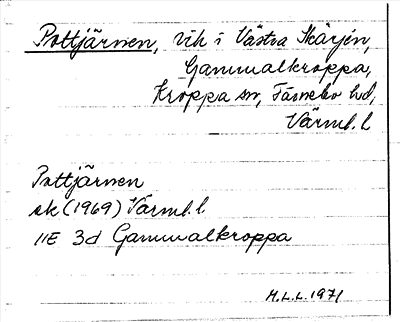 Pottjärnen, vik i Västra Skärjen,
Gammalkroppa,
Kroppa sn, Färnebo hd,
Värml. l
Pottjärnen
ek (1969) Värml. l
11E 3d Gammalkroppa
M.L.L. 1971